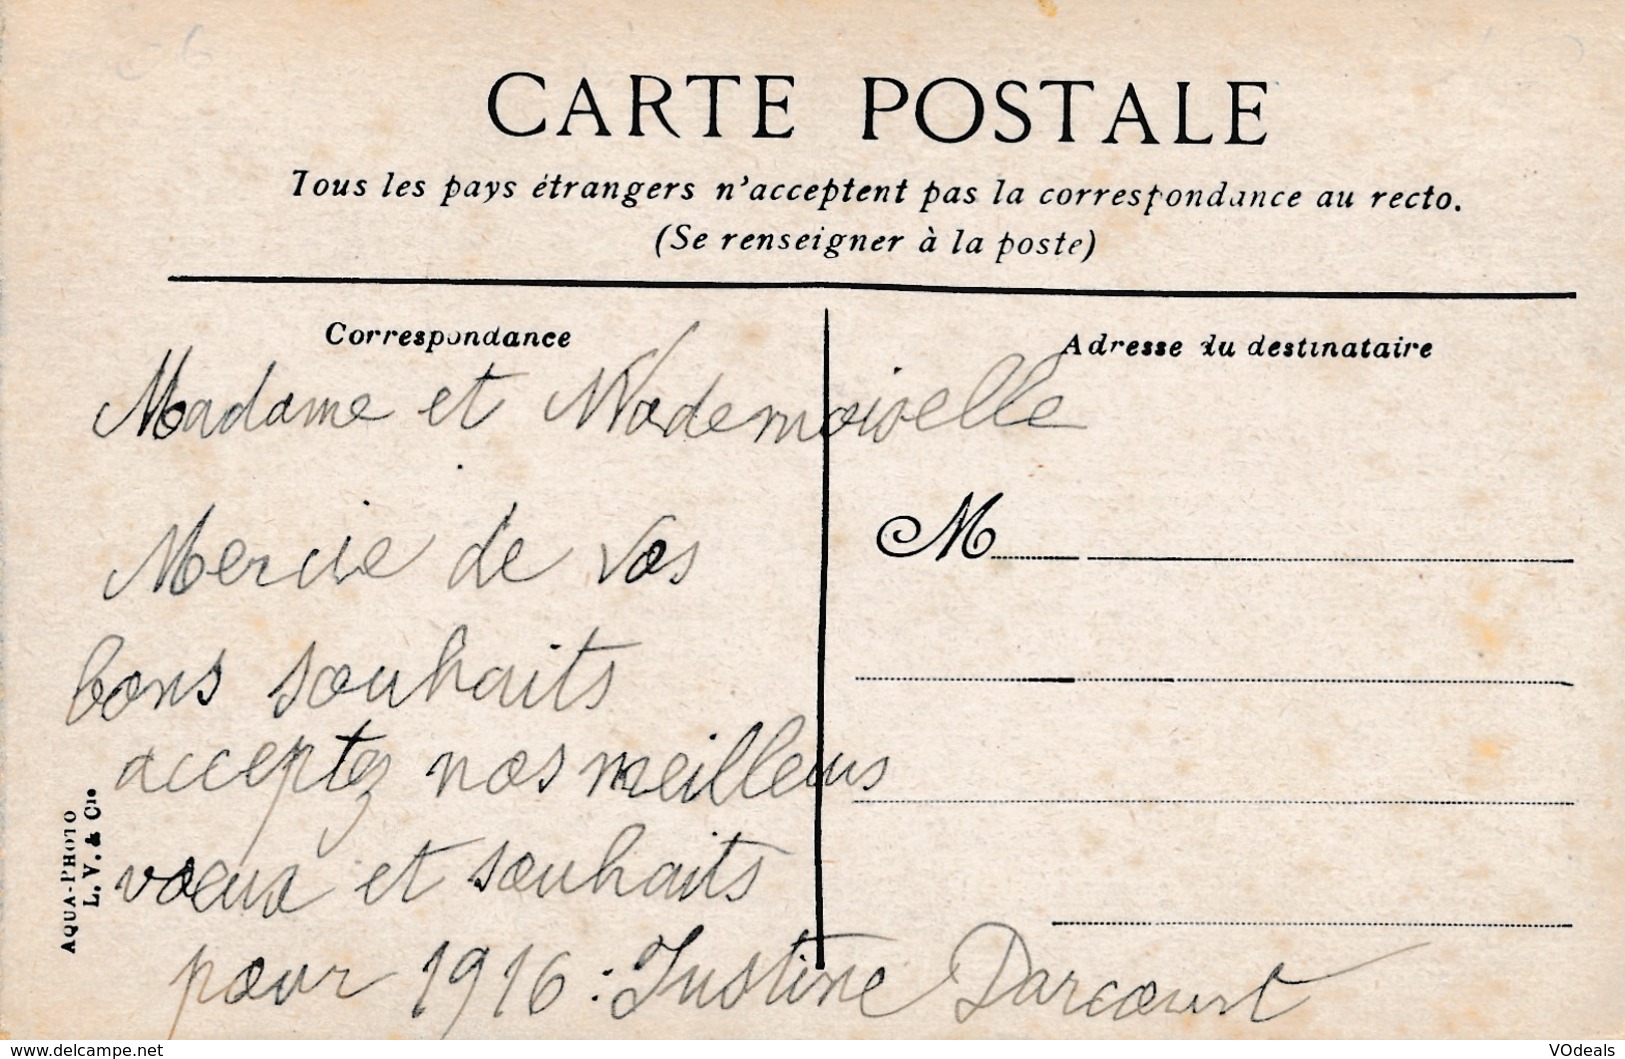 CARTE POSTALE
Tous les pays étrangers n'acceptent pas la correspondance au recto.
(Se renseigner à la poste)
Correspondance
Adresse du destinataire
Madame et Mademoiselle
Mercie de vos
bons souhaits
acceptez nos meilleurs
voeux et souhaits
pour 1916 : Justine Darcourt
M
AQUA-PHOTO
L. V. & Cie
www.delcampe.net
VOdeals